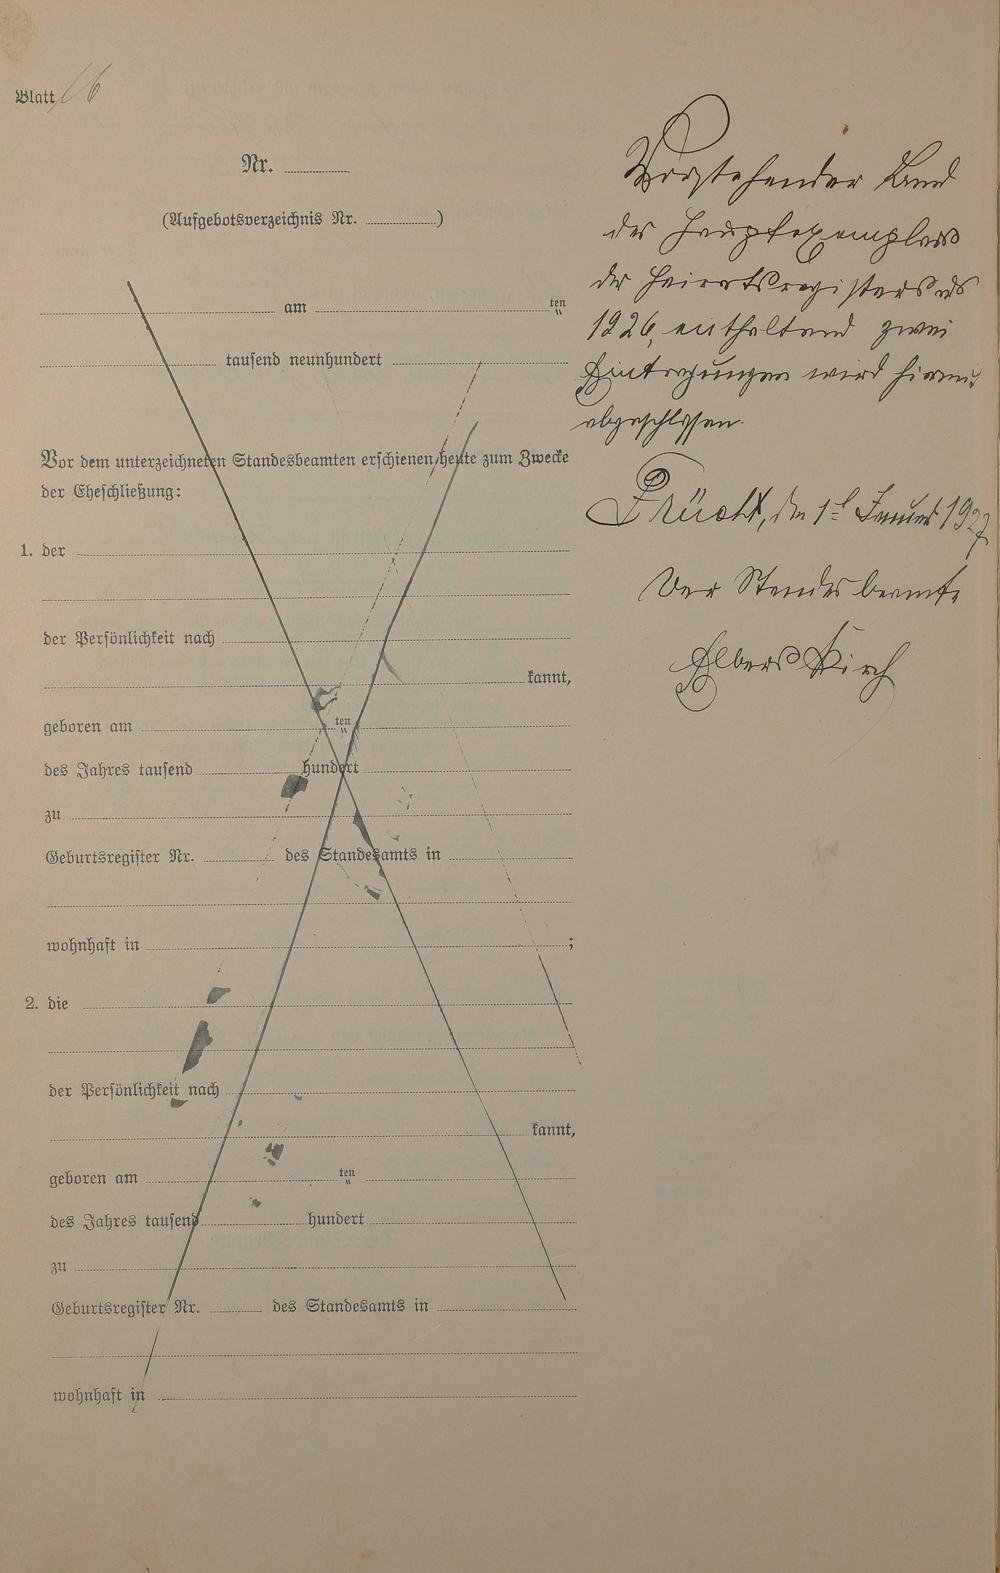 Blatt 16
Nr.
(Aufgebotsverzeichnis Nr. )
am ten
tausend neunhundert
Vor dem unterzeichneten Standesbeamten erschienen heute zum Zwecke
der Eheschließung:
1. der
der Persönlichkeit nach
kannt,
geboren am ten
des Jahres tausend hundert
zu
Geburtsregister Nr. des Standesamts in
wohnhaft in ;
2. die
der Persönlichkeit nach
kannt,
geboren am ten
des Jahres tausend hundert
zu
Geburtsregister Nr. des Standesamts in
wohnhaft in
Vorstehender Band
des Hauptexemplars
des Heiratsregisters
1926, enthaltend zwei
Eintragungen wird hiermit
abgeschlossen.
Frücht, den 1ten Januar 1927
Der Standesbeamte
Albert Kirch